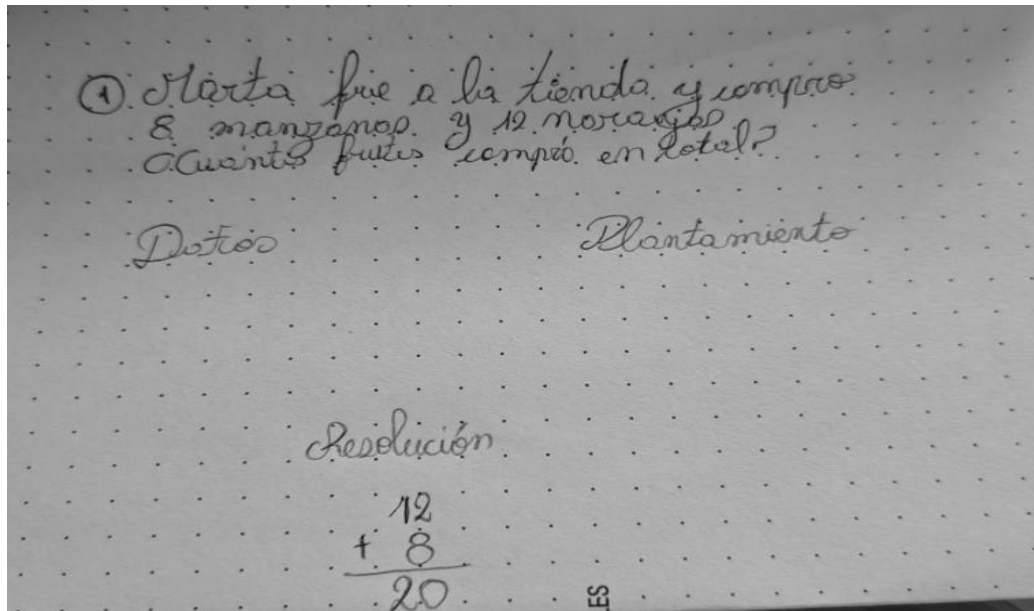 ① Marta fue a la tienda y compró
8 manzanas y 12 naranjas
¿Cuántas frutas compró en total?
Datos
Plantamiento
Resolución
12
+ 8
20
ES